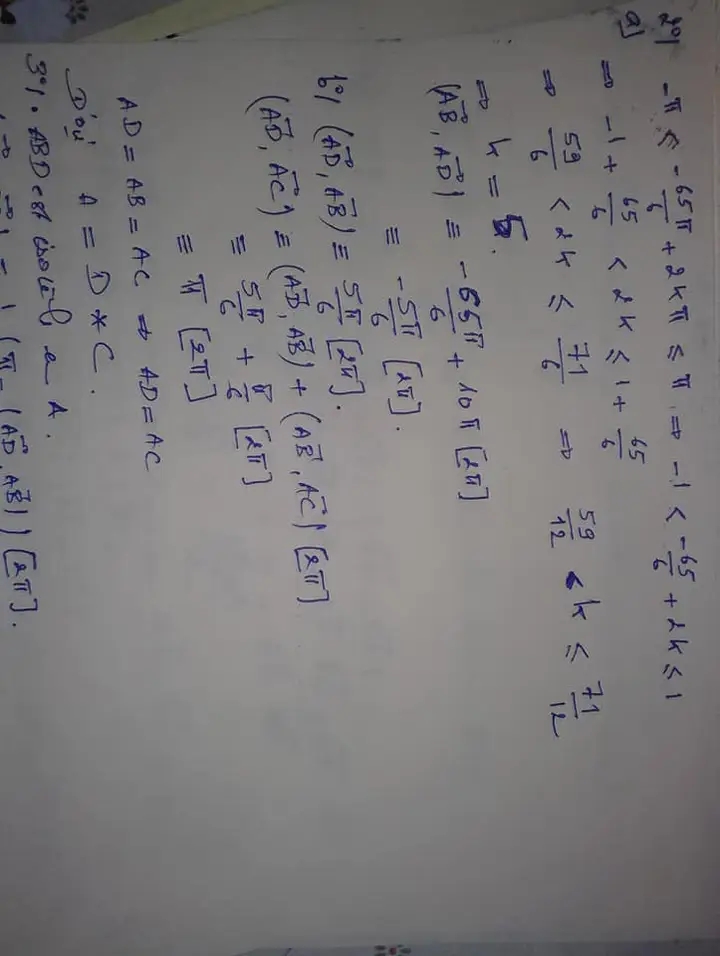 2°/
a) -π < -65π/6 + 2kπ ≤ π. ⇒ -1 < -65/6 + 2k ≤ 1
⇒ -1 + 65/6 < 2k ≤ 1 + 65/6
⇒ 59/6 < 2k ≤ 71/6 ⇒ 59/12 < k ≤ 71/12
⇒ k = 5.
(AB→, AD→) ≡ -65π/6 + 10π [2π]
≡ -5π/6 [2π].
b°/ (AD→, AB→) ≡ 5π/6 [2π].
(AD→, AC→) ≡ (AD→, AB→) + (AB→, AC→) [2π]
≡ 5π/6 + π/6 [2π]
≡ π [2π]
AD = AB = AC ⇒ AD = AC
D'où A = D * C.
3°/. ABD est isocèle en A.
(π - (AD→, AB→)) [2π].